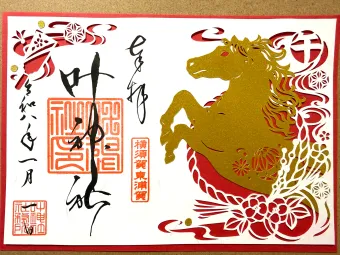 奉拝
横須賀
東浦賀
叶神社
令和八年一月
午